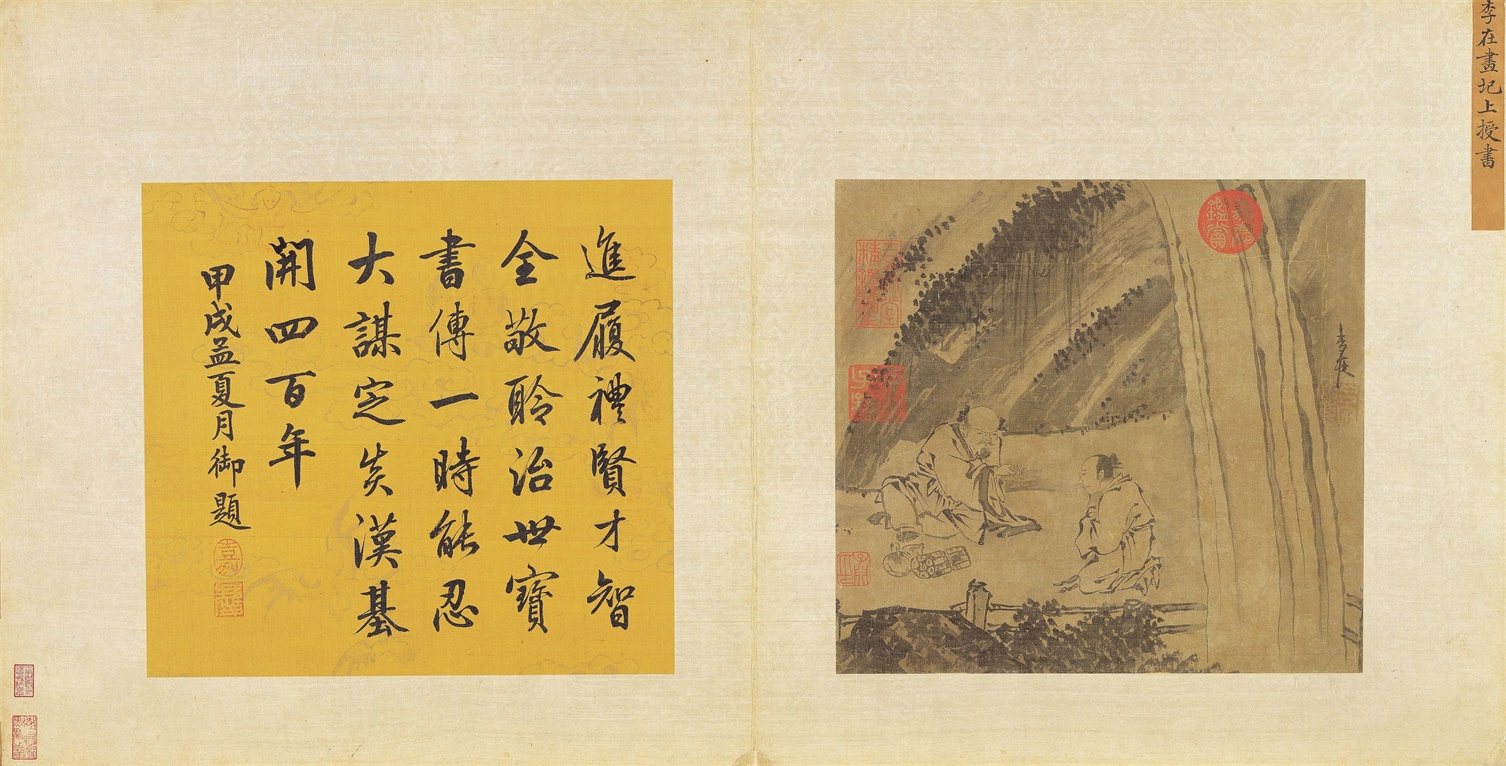 李在畫圯上授書
李在
嘉慶鑑賞
進履禮賢才智
全敬聆治世寶
書傳一時能忍
大謀定矣漢基
開四百年
甲戌孟夏月御題
嘉